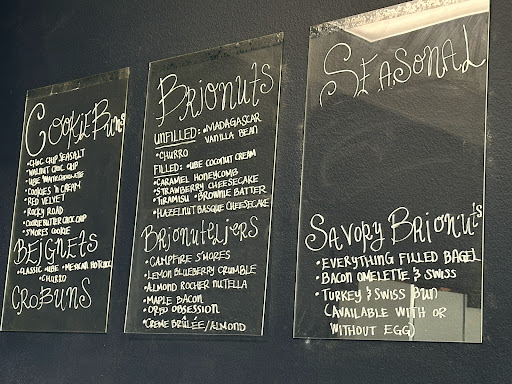 Cookie Buns
• Choc Chip Seasalt
• Walnut Choc Chip
• Ube White Chocolate
• Cookies 'n Cream
• Red Velvet
• Rocky Road
• Cookie Butter Choc Chip
• S'mores Cookie
Beignets
• Classic • Ube • Mexican Hot Choc
• Churro
CroBuns
Brionuts
Unfilled: • Madagascar
Vanilla Bean
• Churro
Filled: • Ube Coconut Cream
• Caramel Honeycomb
• Strawberry Cheesecake
• Tiramisu • Brownie Batter
• Hazelnut Basque Cheesecake
Brionutellers
• Campfire S'mores
• Lemon Blueberry Crumble
• Almond Rocher Nutella
• Maple Bacon
• Oreo Obsession
• Creme Brûlée/Almond
Seasonal
Savory Brionuts
• Everything Filled Bagel
• Bacon Omelette & Swiss
• Turkey & Swiss Bun
(Available with or
without egg)